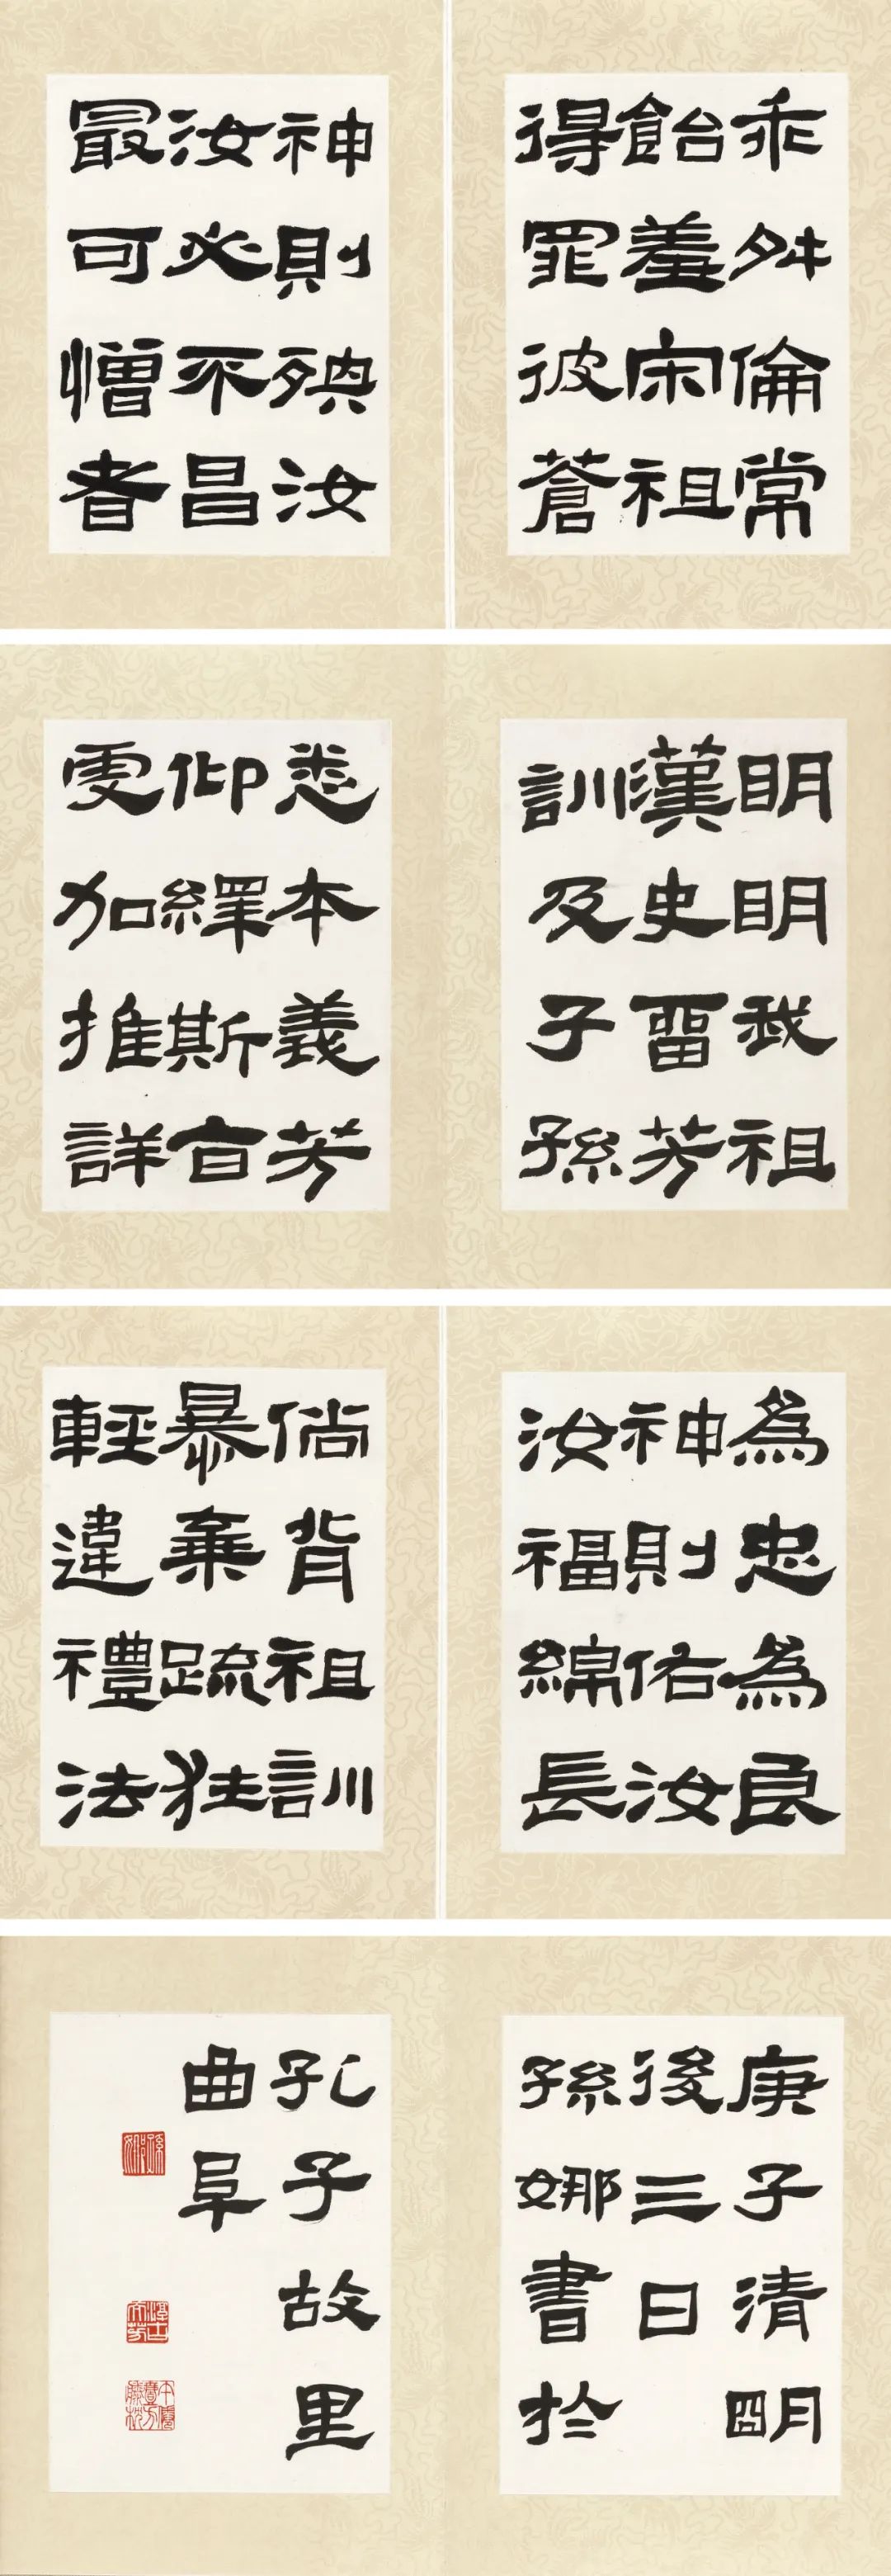 乖舛倫常
飴羞宗祖
得罪彼蒼
神則殃汝
汝必不昌
最可憎者
明明我祖
漢史畱芳
訓及子孫
悉本義芳
仰繹斯旨
更加推詳
為忠為良
神則佑汝
汝福綿長
倘背祖訓
暴棄疏狂
輕違禮法
庚子清明
後三日
孫娜書於
孔子故里
曲阜